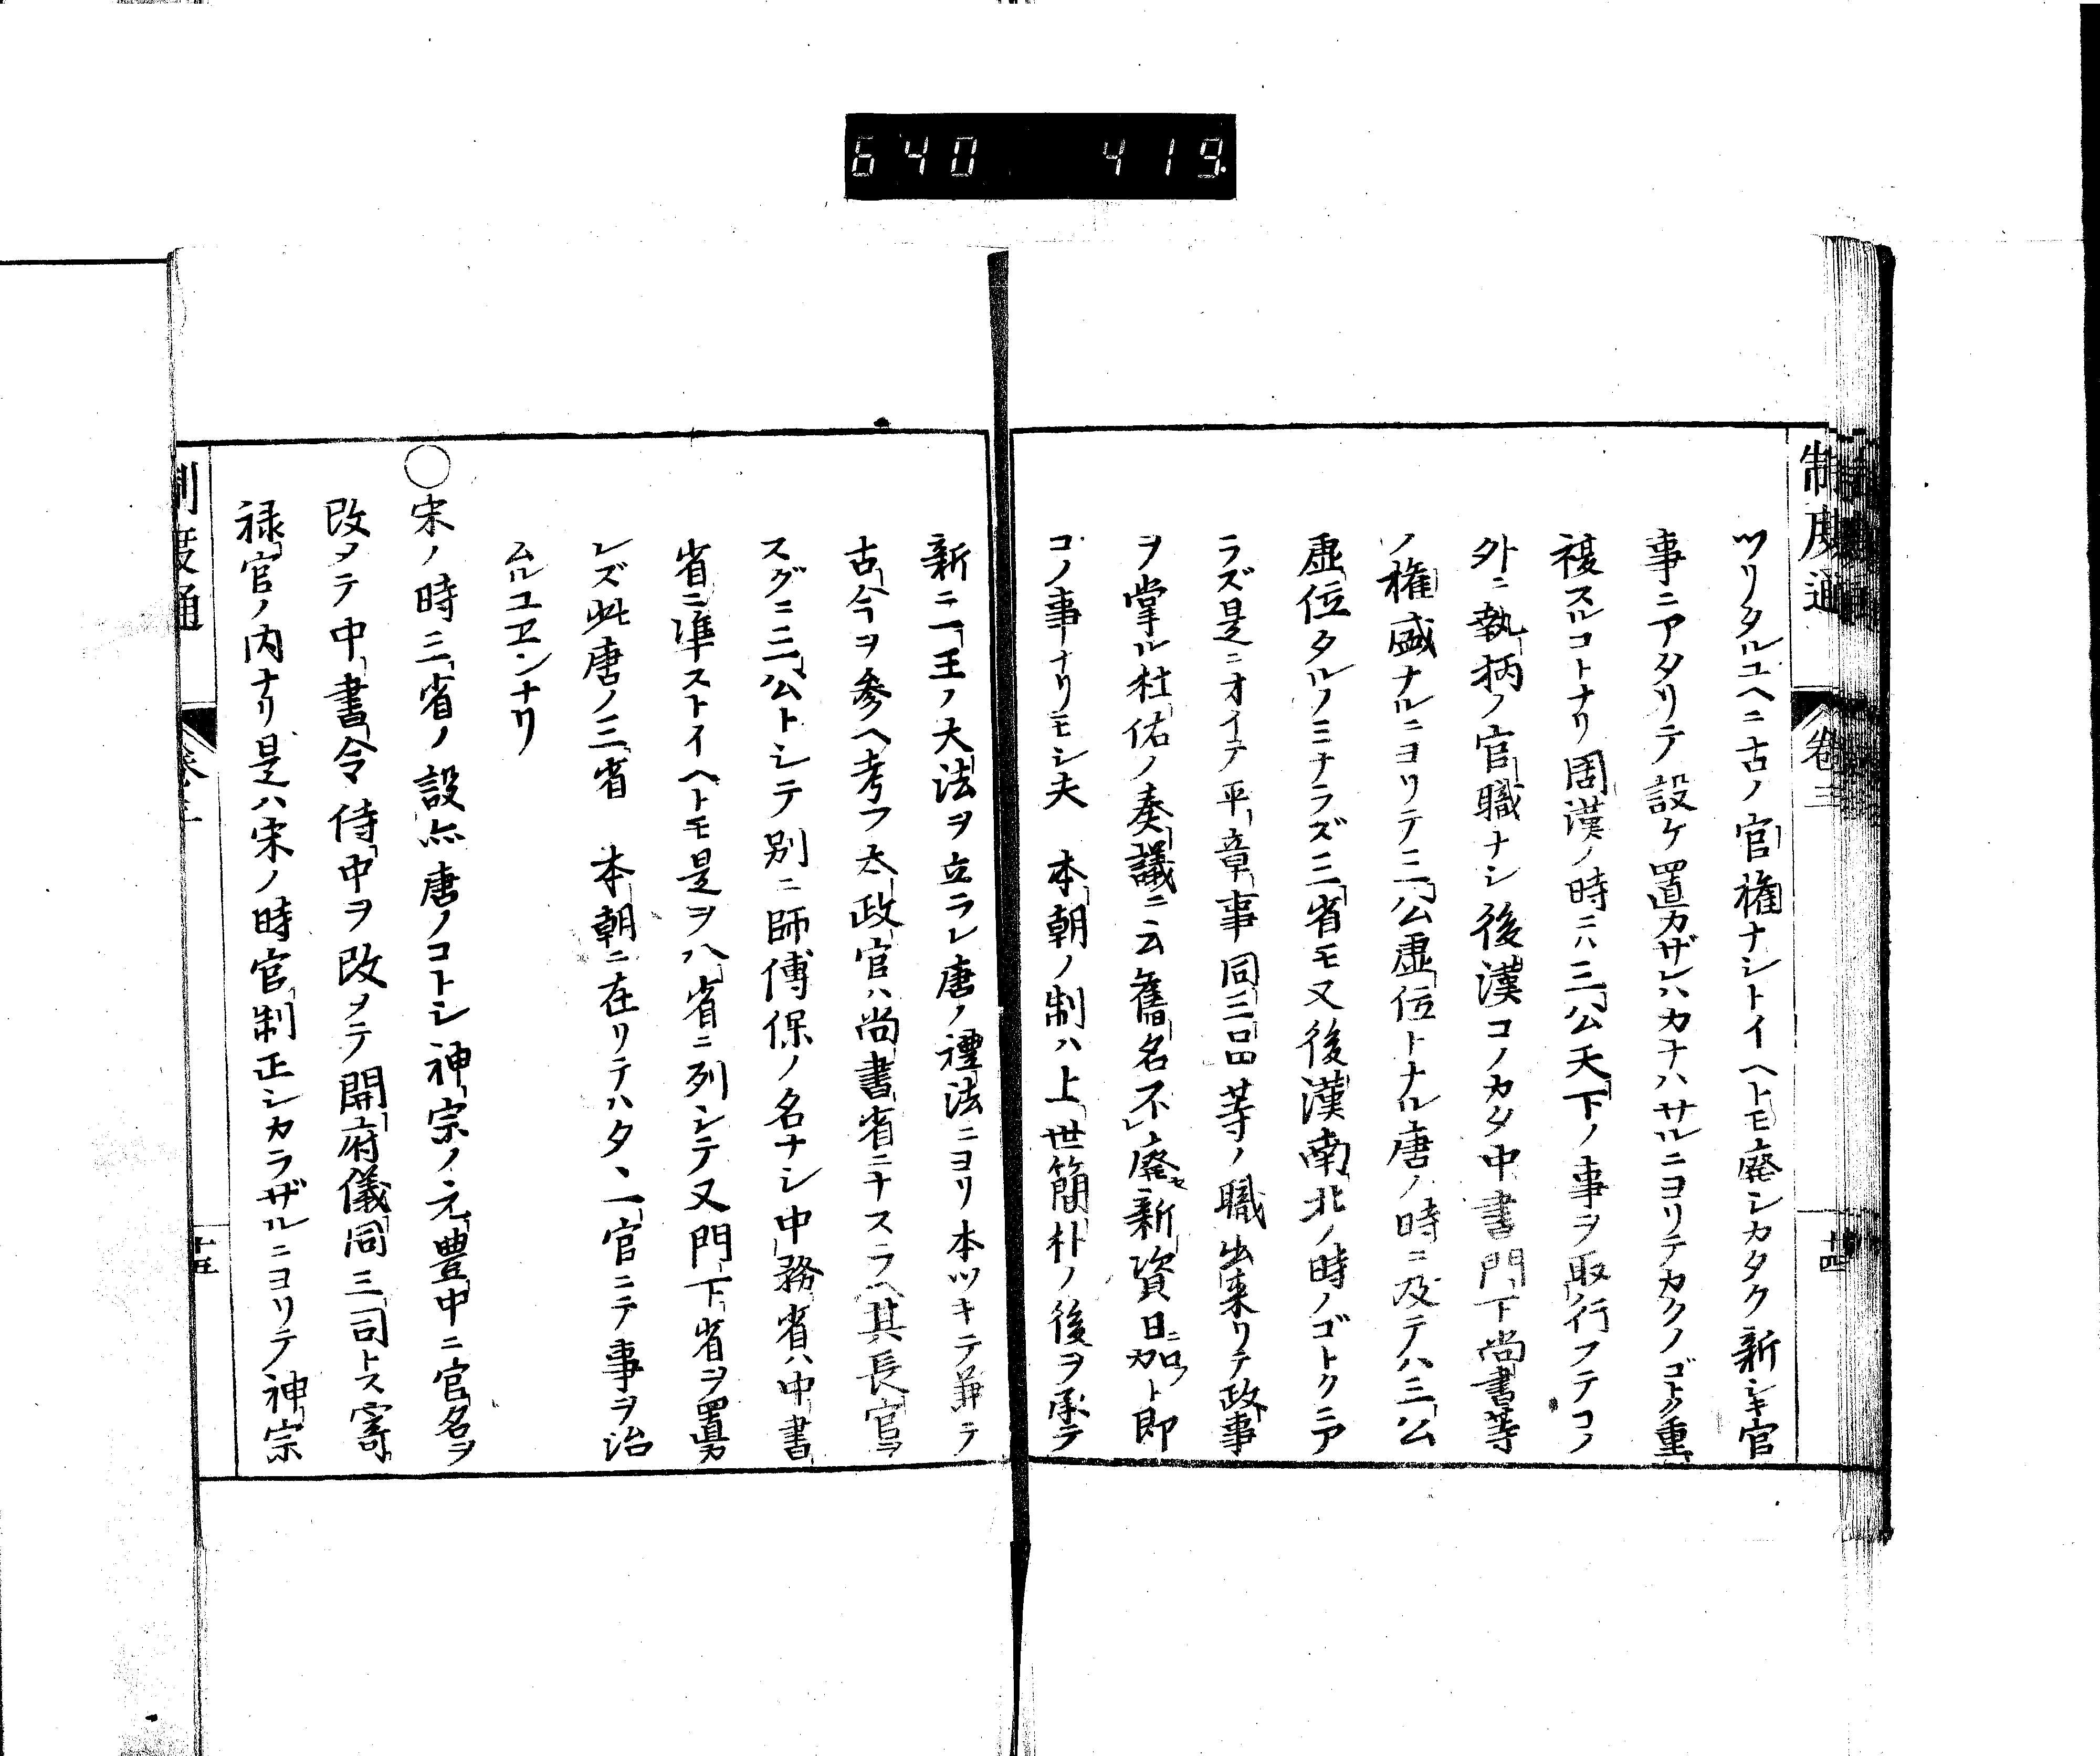 640 419.
制度通 卷三 十四
ツリタルユヘニ古ノ官権ナシトイヘトモ廃シカタク新シキ官
事ニアタリテ設ケ置カザレハカナハサルニヨリテカクノゴトク重
複スルコトナリ周漢ノ時ニハ三公天下ノ事ヲ取行フテコノ
外ニ執柄ノ官職ナシ後漢コノカタ中書門下尚書等
ノ権盛ナルニヨリテ三公虚位トナル唐ノ時ニ及テハ三公
虚位タルノミナラズ三省モ又後漢南北ノ時ノゴトクニア
ラズ是ニオイテ平章事同三品等ノ職出来リテ政事
ヲ掌ル杜佑ノ奏議ニ云舊名不廃セ新資日ニ加ハルト即
コノ事ナリモシ夫 本朝ノ制ハ上世簡朴ノ後ヲ承テ
新ニ一王ノ大法ヲ立ラレ唐ノ禮法ニヨリ本ツキテ兼テ
古今ヲ参ヘ考フ太政官ハ尚書省ニナスラヘ其長官ヲ
スグニ三公トシテ別ニ師傅保ノ名ナシ中務省ハ中書
省ニ準ストイヘトモ是ヲ八省ニ列シテ又門下省ヲ置カ
レズ此唐ノ三省 本朝ニ在リテハタヽ一官ニテ事ヲ治
ムルユヱンナリ
○宋ノ時三省ノ設亦唐ノコトシ神宗ノ元豊中ニ官名ヲ
改ヲテ中書令侍中ヲ改ヲテ開府儀同三司トス寄
禄官ノ内ナリ是ハ宋ノ時官制正シカラザルニヨリテ神宗
制度通 卷三 十五